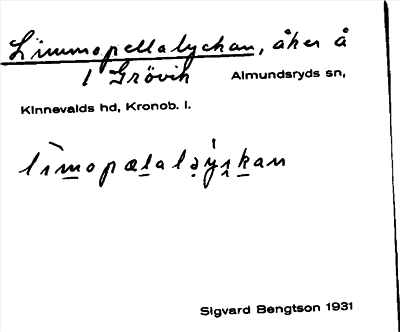 Limmopellalyckan, åker å
1 Grövik Almundsryds sn,
Kinnevalds hd, Kronob. l.
Sigvard Bengtson 1931